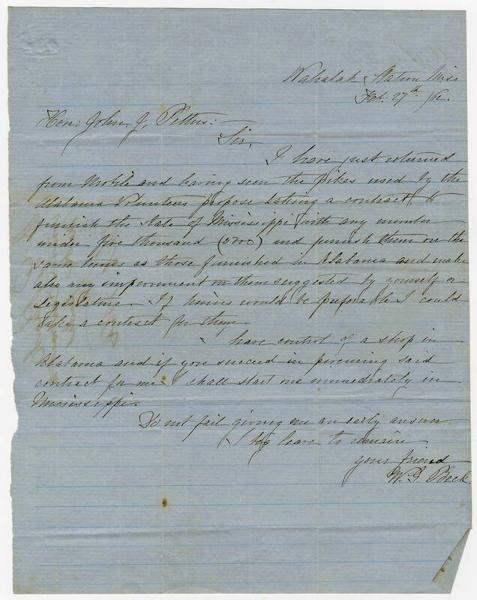 Wahalak Station Miss
Feb. 27th /62.
Hon: John J. Pettus:
Sir,
I have just returned
from Mobile and having seen the pikes used by the
Alabama Volunteers propose taking a contract to
furnish the State of Mississippi with any number
under five thousand (5000) and furnish them on the
same terms as those furnished in Alabama and make
also any improvement on them suggested by yourself or
Legislature. If knives would be preferable I could
take a contract for them
I have control of a shop in
Alabama and if you succeed in procuring said
contract for me I shall start one immediately in
Mississippi.
Do not fail giving me an early answer
beg leave to remain
your friend
W. J. Beck